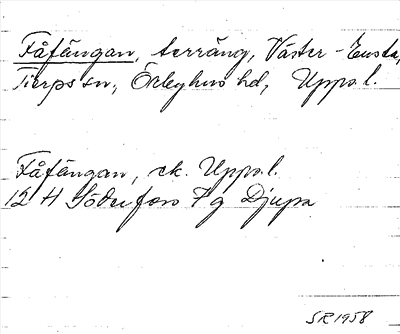 Fåfängan, terräng, Väster-Ensta,
Tierps sn, Örbyhus hd, Upps.l.
Fåfängan, ek. Upps.l.
12 H Söderfors 7 g Djupa
SR 1958